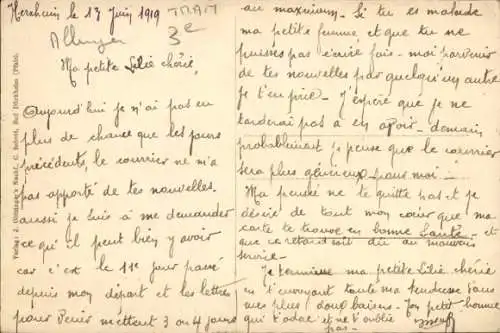 Herxheim le 13 Juin 1919
3e
Ma petite Lilie chérie,
Aujourd'hui je n'ai pas eu
plus de chance que les jours
précédents, le courrier ne m'a
pas apporté de tes nouvelles.
aussi je suis à me demander
ce qu'il peut bien y avoir
car c'est le 11e jour passé
depuis mon départ et les lettres
pour venir mettent 3 ou 4 jours
au maximum. Si tu es malade
ma petite femme, et que tu ne
puisses pas écrire fais-moi parvenir
de tes nouvelles par quelqu'un autre
je t'en prie. J'espère que je ne
tarderai pas à en avoir. demain
probablement je pense que le courrier
sera plus généreux pour moi.
Ma pensée ne te quitte pas et je
désire de tout mon cœur que ma
carte te trouve en bonne Santé et
que ce retard soit dû au mauvais
service.
Je termine ma petite Lilie chérie
en t'envoyant toute ma tendresse dans
mes plus doux baisers. Ton petit homme
qui t'adore et ne t'oublie
pas.